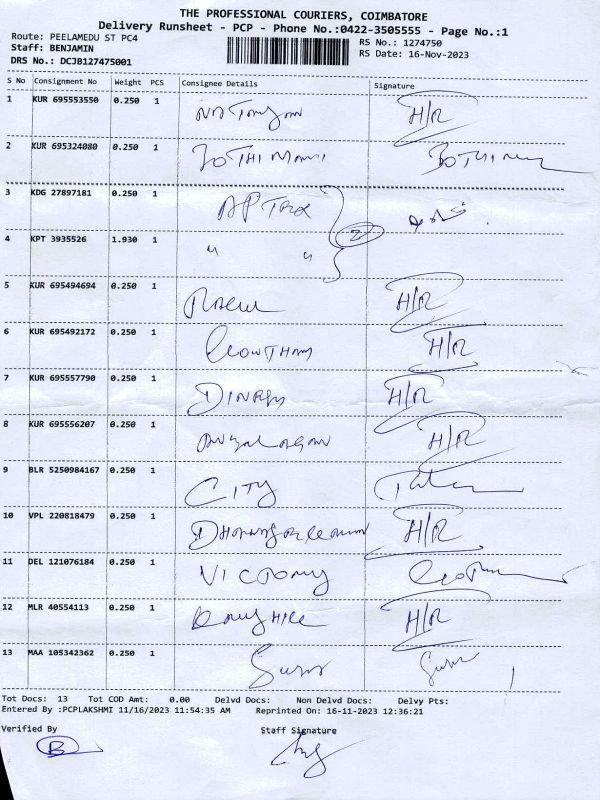 THE PROFESSIONAL COURIERS, COIMBATORE
Delivery Runsheet - PCP - Phone No.:0422-3505555 - Page No.:1
Route: PEELAMEDU ST PC4
Staff: BENJAMIN
DRS No.: DCJB127475001
RS No.: 1274750
RS Date: 16-Nov-2023
S No Consignment No Weight PCS Consignee Details Signature
1 KUR 695553550 0.250 1 H/R
2 KUR 695324080 0.250 1 JOTHI MANI
3 KDG 27897181 0.250 1 AP Tax
4 KPT 3935526 1.930 1 " " 2
5 KUR 695494694 0.250 1 H/R
6 KUR 695492172 0.250 1 GOWTHAM H/R
7 KUR 695557790 0.250 1 DINESH H/R
8 KUR 695556207 0.250 1 H/R
9 BLR 5250984167 0.250 1 CITY
10 VPL 220818479 0.250 1 H/R
11 DEL 121076184 0.250 1 VICTORY
12 MLR 40554113 0.250 1 H/R
13 MAA 105342362 0.250 1
Tot Docs: 13 Tot COD Amt: 0.00 Delvd Docs: Non Delvd Docs: Delvy Pts:
Entered By :PCPLAKSHMI 11/16/2023 11:54:35 AM Reprinted On: 16-11-2023 12:36:21
Verified By Staff Signature
B